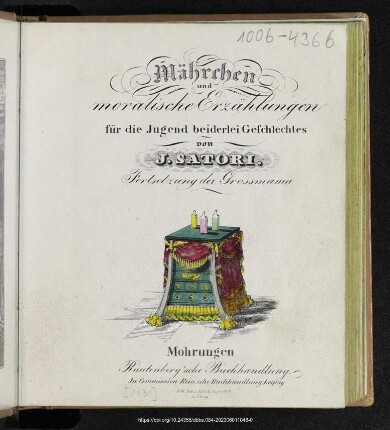 1006-4366
Mährchen
und
moralische Erzählungen
für die Jugend beiderlei Geschlechtes
von
J. SATORI.
Fortsetzung der Grossmama
Mohrungen
Rautenberg'sche Buchhandlung
In Commission Rein'sche Buchhandlung Leipzig
[1831]
https://doi.org/10.24355/dbbs.084-202306011048-0